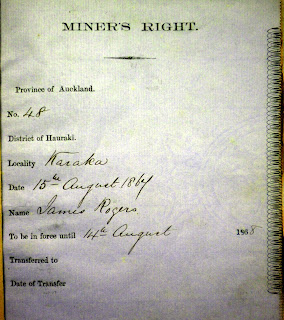 MINER'S RIGHT.
Province of Auckland.
No. 48
District of Hauraki.
Locality Karaka
Date 15th August 1867
Name James Rogers
To be in force until 14th August 1868
Transferred to
Date of Transfer